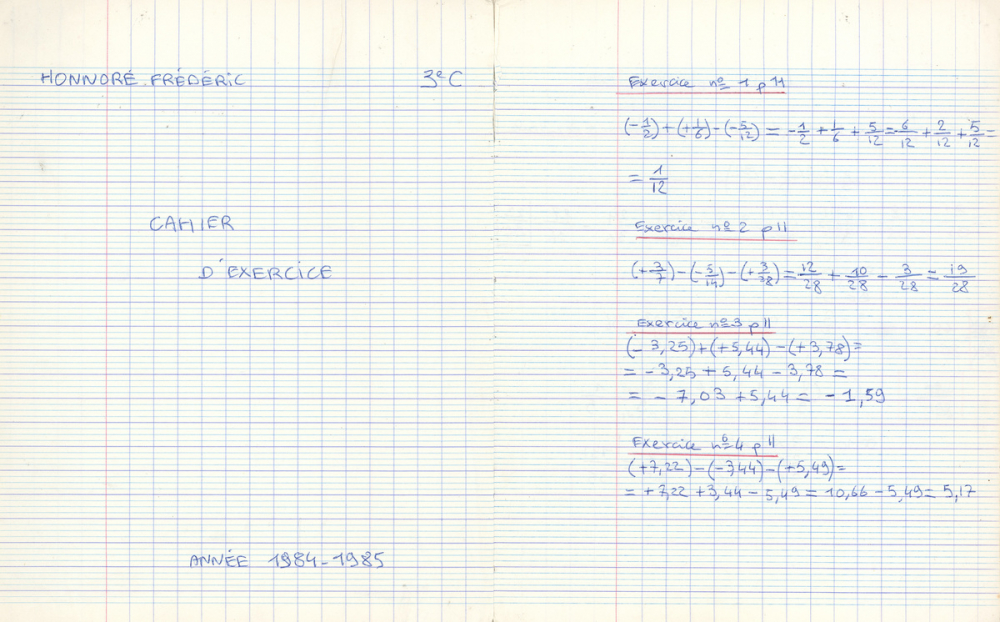 HONNORÉ FRÉDÉRIC 3e C
CAHIER
D'EXERCICE
ANNÉE 1984-1985
Exercice nº 1 p 11
(-1/2)+(+1/6)-(-5/12) = -1/2 + 1/6 + 5/12 = -6/12 + 2/12 + 5/12 =
= 1/12
Exercice nº 2 p 11
(+3/7)-(-5/14)-(+3/28) = 12/28 + 10/28 - 3/28 = 19/28
Exercice nº 3 p 11
(-3,25)+(+5,44)-(+3,78)=
= -3,25 + 5,44 - 3,78 =
= - 7,03 + 5,44 = - 1,59
Exercice nº 4 p 11
(+7,22)-(-3,44)-(+5,49)=
= +7,22 + 3,44 - 5,49 = 10,66 - 5,49 = 5,17